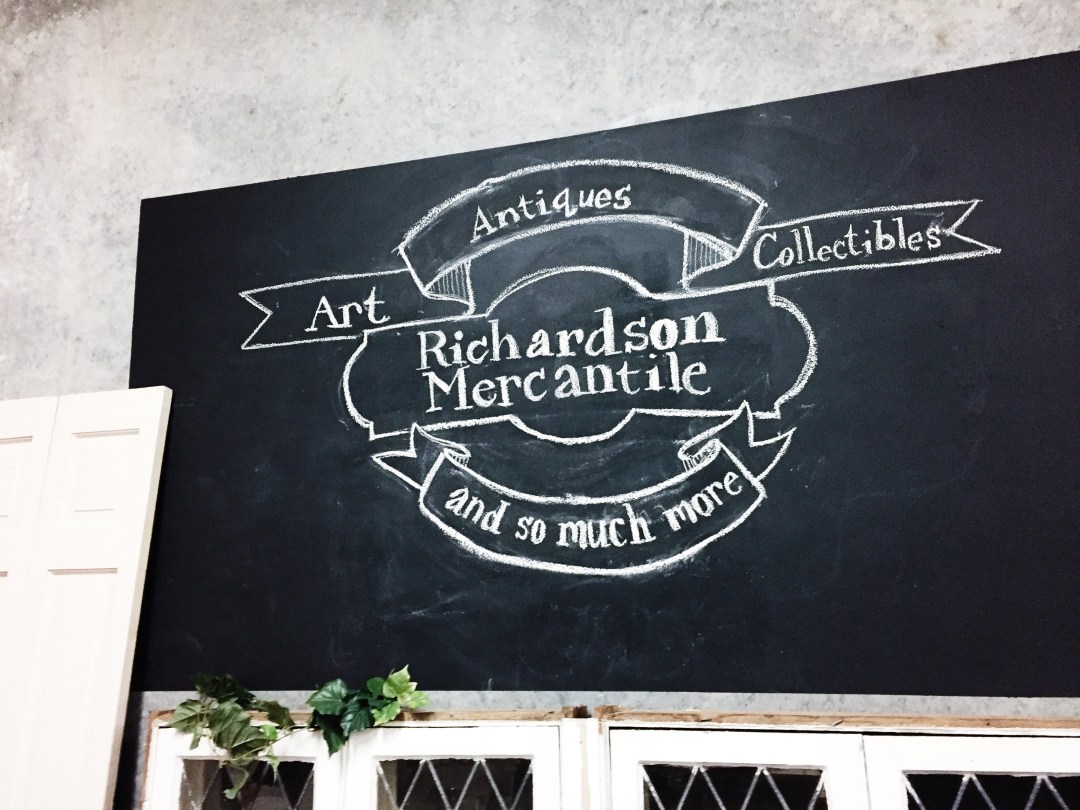 Antiques
Art
Collectibles
Richardson
Mercantile
and so much more